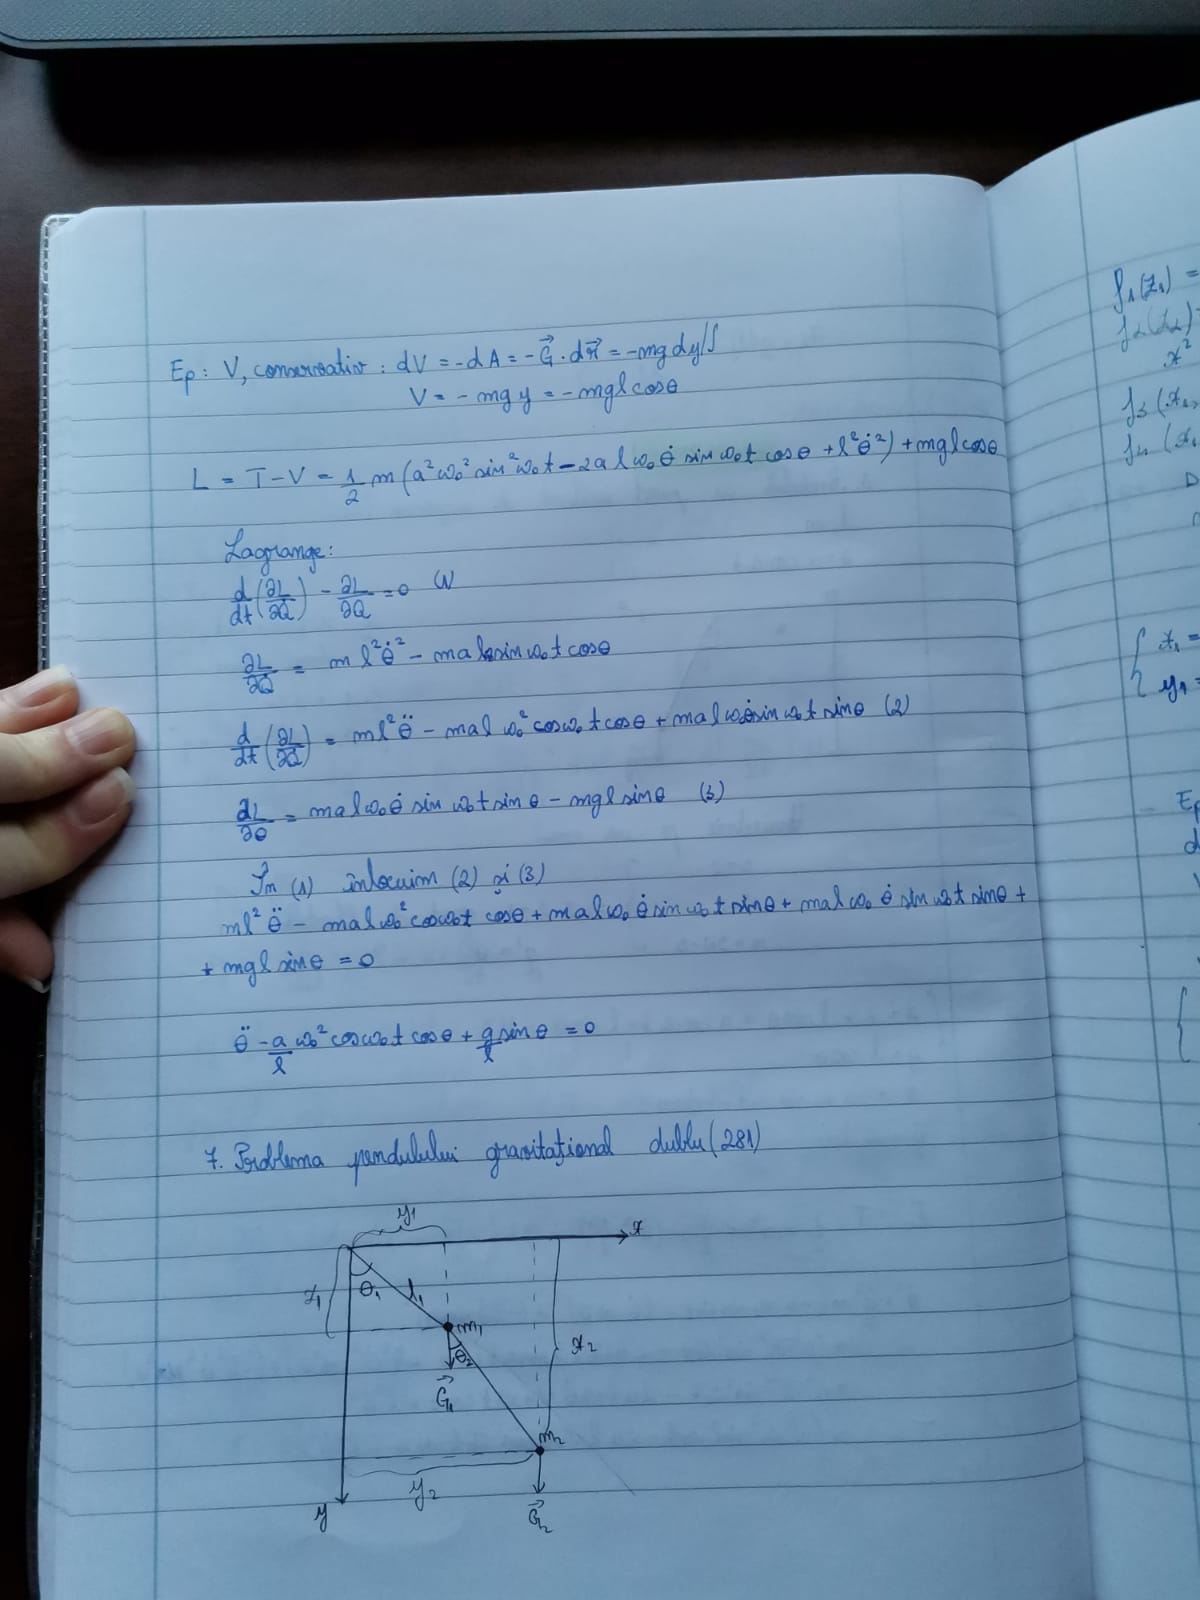 Ep: V, conservativ: dV = -dA = -G⃗·dr⃗ = -mgdy/∫
V = -mgy = -mglcosθ
L = T-V = 1/2 m(a²ω₀²sin²ω₀t - 2alω₀θ̇ sinω₀t cosθ + l²θ̇²) + mglcosθ
Lagrange:
d/dt(∂L/∂Q̇) - ∂L/∂Q = 0 (1)
∂L/∂Q̇ = ml²θ̇² - mal sinω₀t cosθ
d/dt(∂L/∂Q̇) = ml²θ̈ - malω₀²cosω₀t cosθ + malω₀θ̇sinω₀t sinθ (2)
∂L/∂θ = malω₀θ̇ sinω₀t sinθ - mglsinθ (3)
În (1) înlocuim (2) și (3)
ml²θ̈ - malω₀²cosω₀t cosθ + malω₀θ̇sinω₀t sinθ + malω₀θ̇ sinω₀t sinθ +
+ mgl sinθ = 0
θ̈ - a/l ω₀²cosω₀t cosθ + g/l sinθ = 0
7. Problema pendulului gravitațional dublu (281)
y₁
x
x₁
θ₁
l₁
m₁
θ₂
x₂
G⃗₁
m₂
y₂
y
G⃗₂
f₁(z₁) =
f₂(z₂) =
x²
f₃(x₁,
f₄(x₁
D
x₁ =
y₁ =
Ep
d